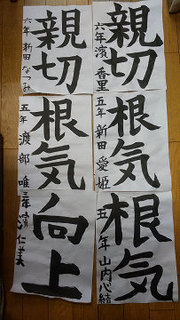 親切
六年 濱 香里
根気
五年 新田 愛姫
根気
五年 山内心結
親切
六年 新田なつみ
根気
五年 渡部 唯
向上
濱 仁美